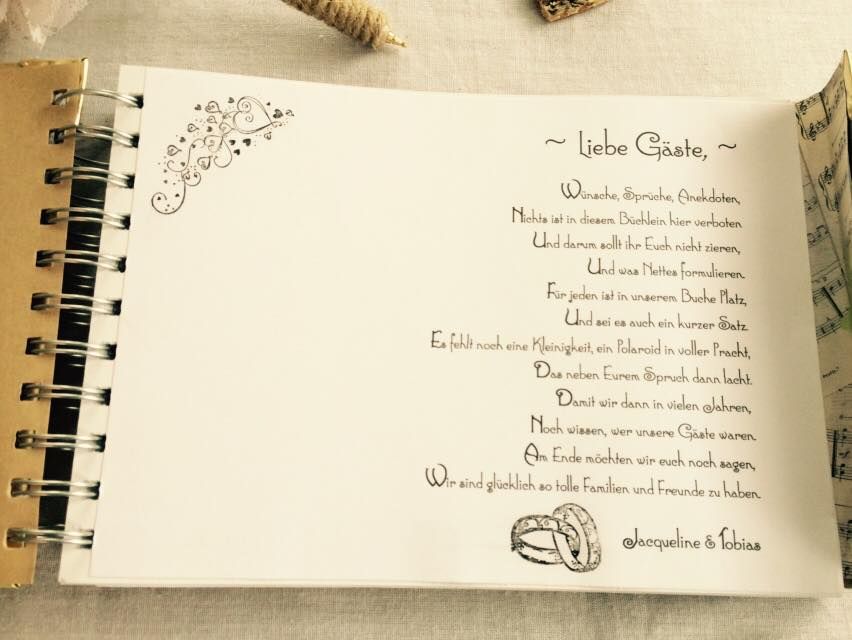 ~ Liebe Gäste, ~
Wünsche, Sprüche, Anekdoten,
Nichts ist in diesem Büchlein hier verboten
Und darum sollt ihr Euch nicht zieren,
Und was Nettes formulieren.
Für jeden ist in unserem Buche Platz,
Und sei es auch ein kurzer Satz.
Es fehlt noch eine Kleinigkeit, ein Polaroid in voller Pracht,
Das neben Eurem Spruch dann lacht.
Damit wir dann in vielen Jahren,
Noch wissen, wer unsere Gäste waren.
Am Ende möchten wir euch noch sagen,
Wir sind glücklich so tolle Familien und Freunde zu haben.
Jacqueline & Tobias